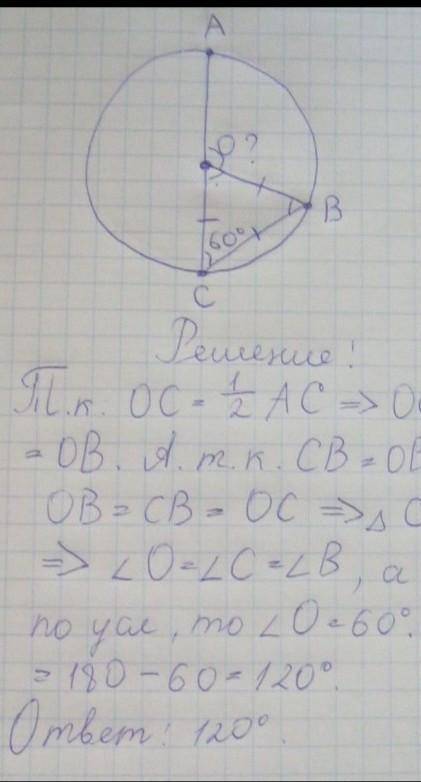 A
O ?
B
60°
C
Решение!
Т.к. OC = 1/2 AC => OC
= OB. А т.к. CB = OB
OB = CB = OC => △ C
=> ∠O = ∠C = ∠B, а
по усл, то ∠O = 60°.
= 180 - 60 = 120°.
Ответ: 120°.